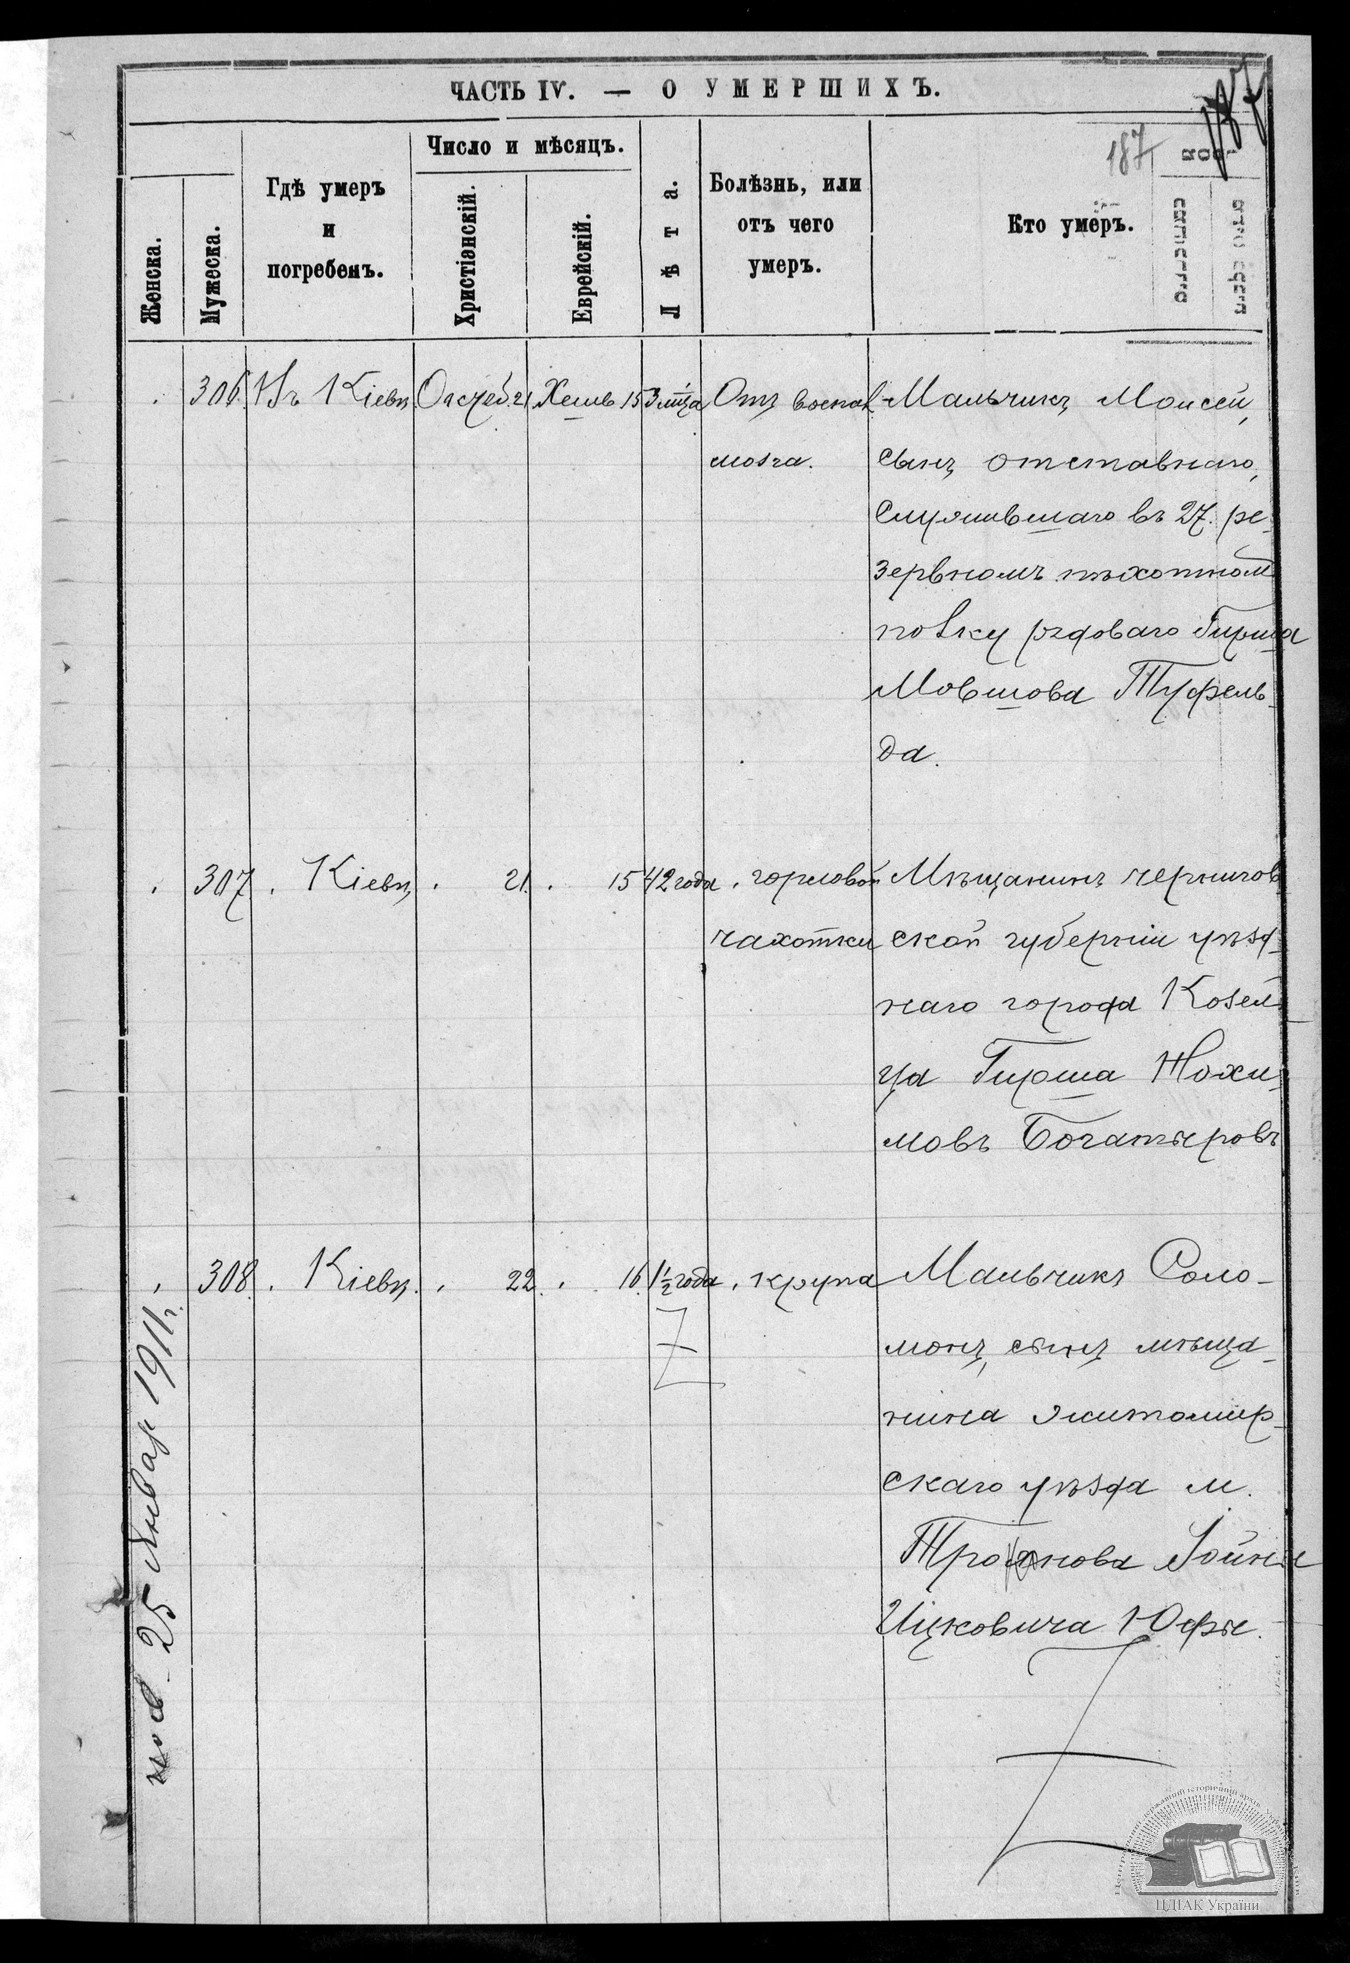 187
ЧАСТЬ IV. — О УМЕРШИХЪ.
187
Женска.
Мужеска.
Гдѣ умеръ
и
погребенъ.
Число и мѣсяцъ.
Христіанскій.
Еврейскій.
Лѣта.
Болѣзнь, или
отъ чего
умеръ.
Кто умеръ.
306. Въ Кіевѣ Октеб. 21 Хешв 15 3 мѣца Отъ воспал. Мальчикъ Моисей,
мозга. сынъ отставнаго,
служившаго въ 27. ре-
зервномъ пѣхотном
полку рядоваго Гирша
Мовшова Туфель-
да.
307. Кіевѣ 21. 15 42 года горловой Мѣщанинъ чернигов
чахотки ской губерніи уѣзд-
наго города Козел-
ца Гирша Нохи-
мовъ Богатыровъ
308. Кіевѣ. 22. 16. 1½ года крупа Мальчикъ Соло-
монъ, сынъ мѣща-
нина житомир-
скаго уѣзда м.
Троянова
Ицковича Юфы.
25 Январ 1911 г.
ЦДІАК України